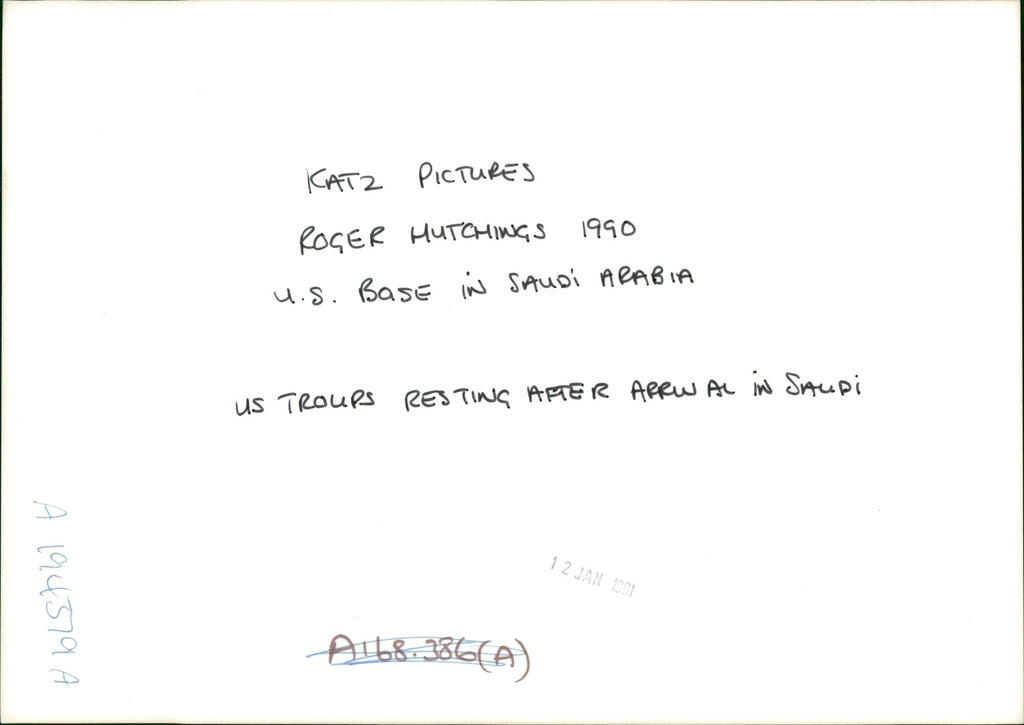 KATZ PICTURES
ROGER HUTCHINGS 1990
U.S. BASE iN SAUDi ARABIA
US TROUPS RESTING AFTER ARRIVAL iN SAUDi
12 JAN 1991
A168.386(A)
A 194579 A